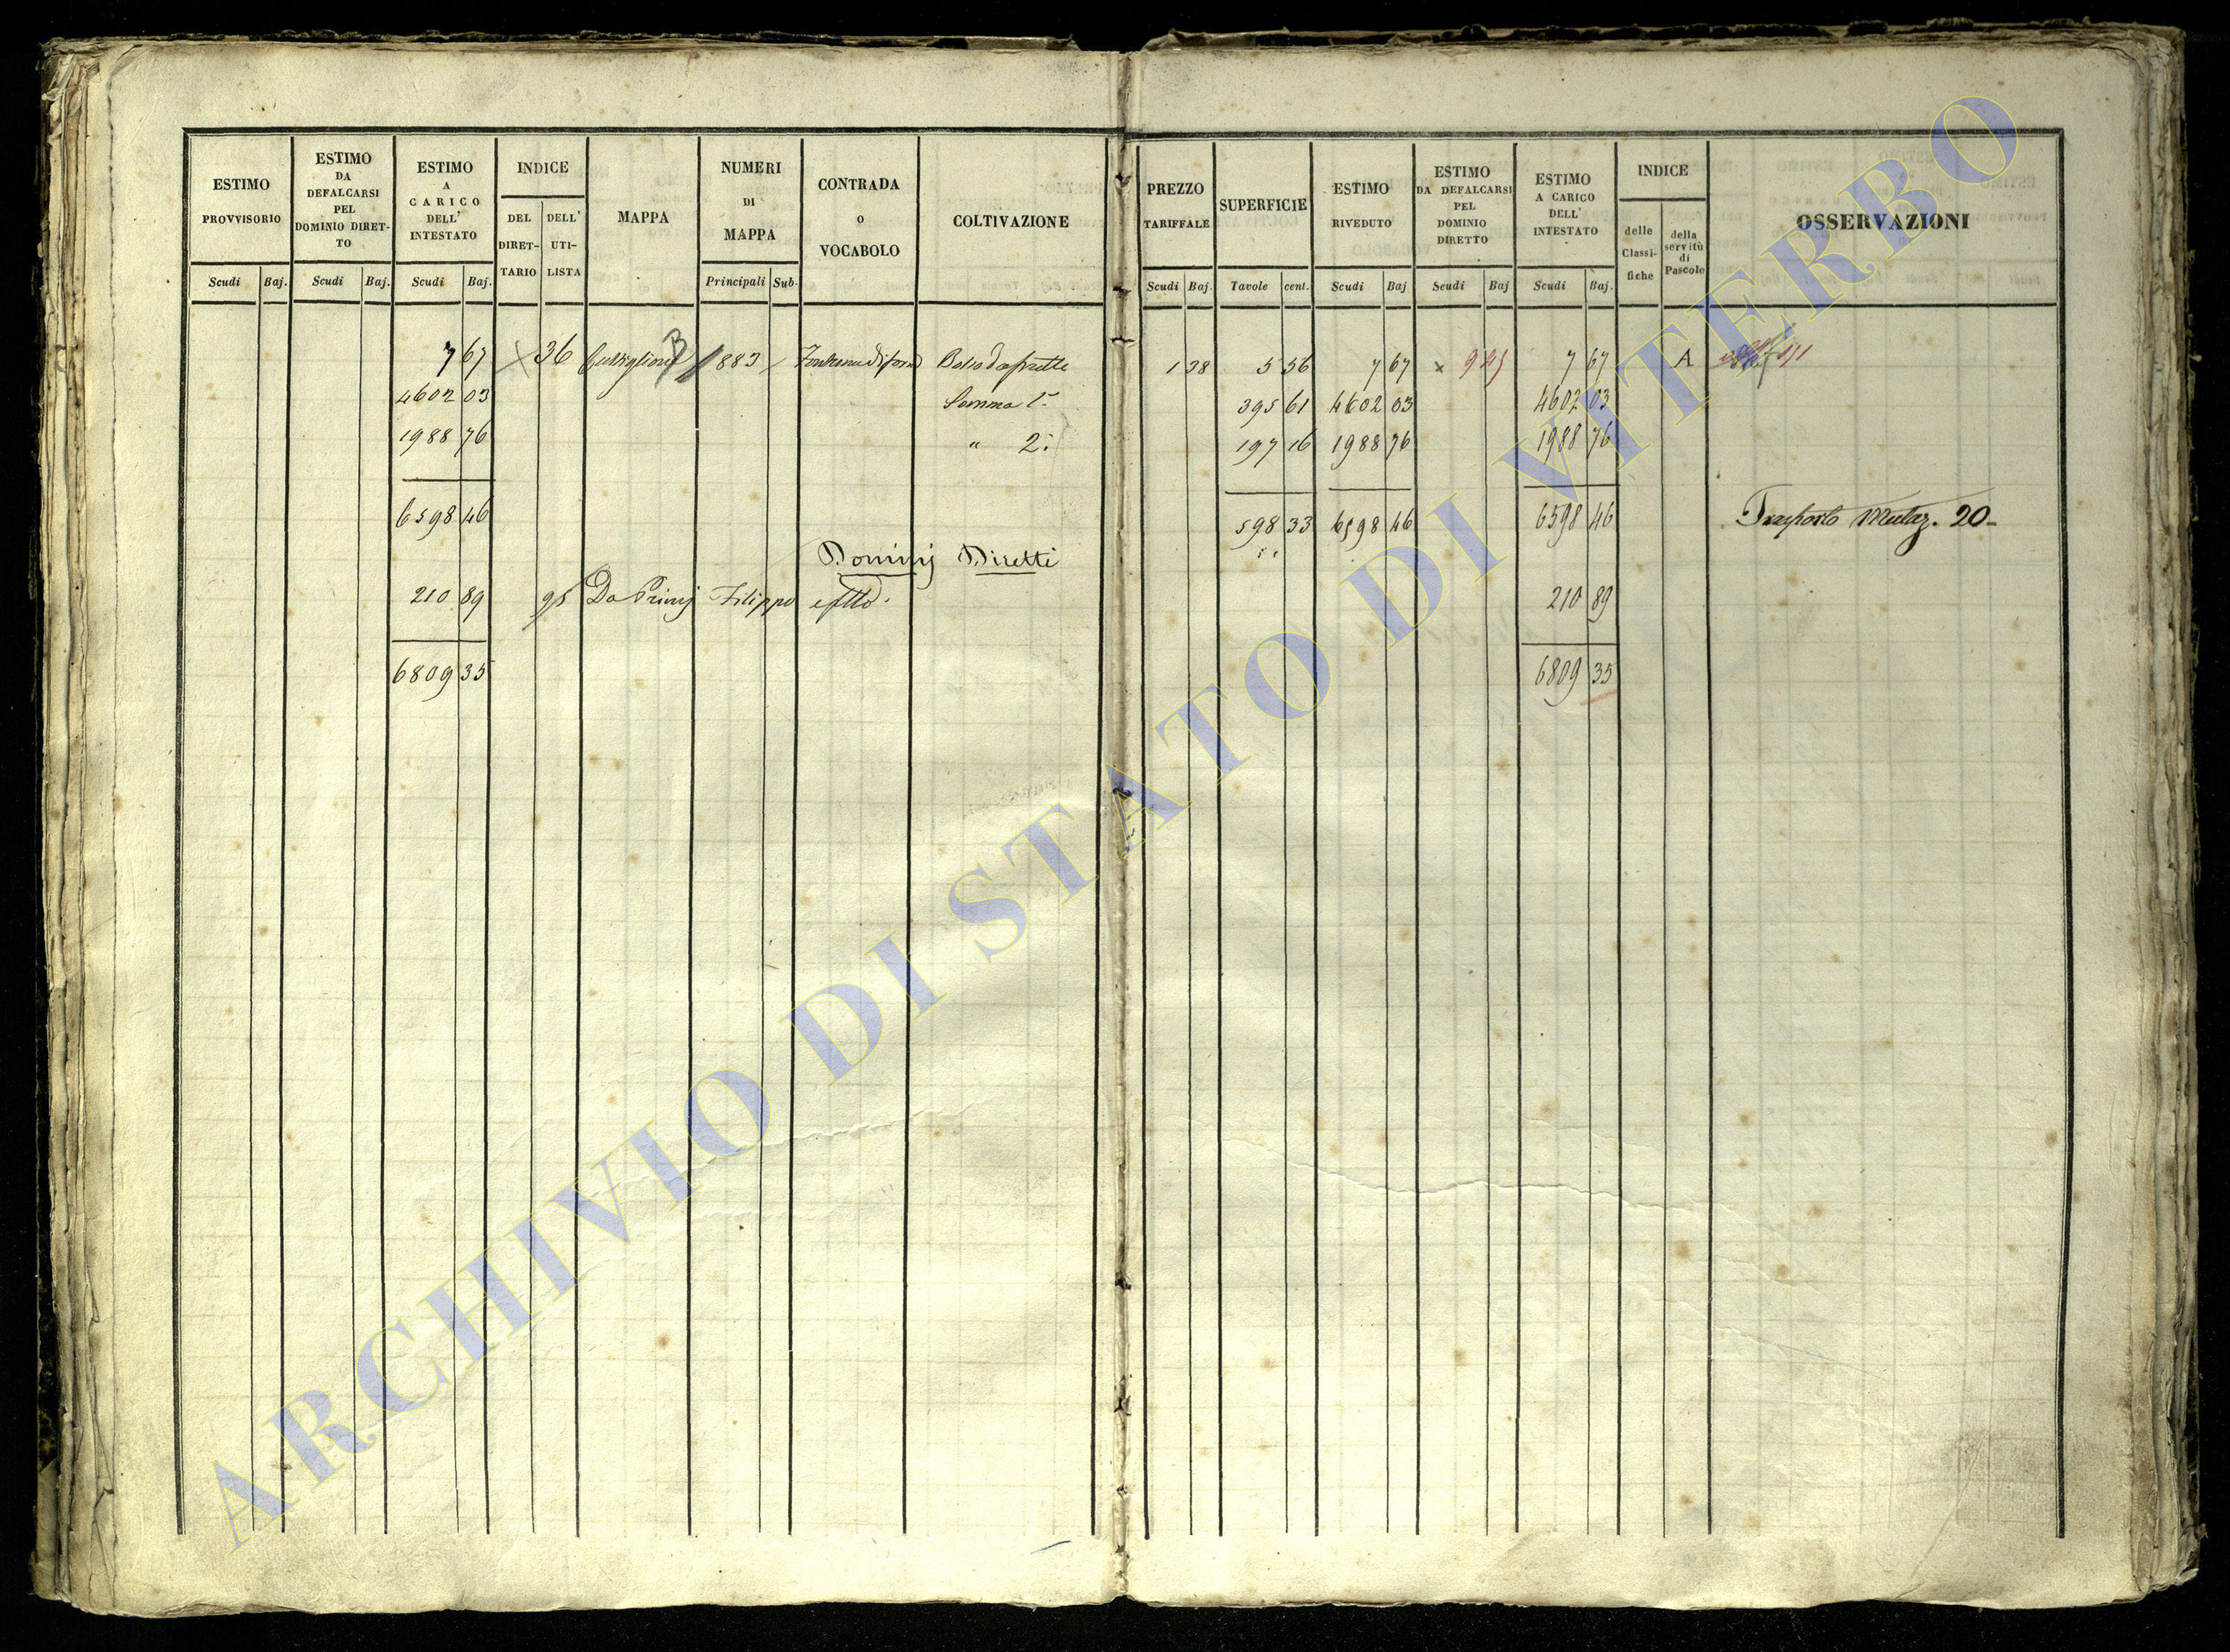 ESTIMO PROVVISORIO
Scudi Baj.
ESTIMO DA DEFALCARSI PEL DOMINIO DIRET-TO
Scudi Baj.
ESTIMO A CARICO DELL' INTESTATO
Scudi Baj.
INDICE
DEL DIRET-TARIO
DELL' UTI-LISTA
MAPPA
NUMERI DI MAPPA
Principali Sub.
CONTRADA o VOCABOLO
COLTIVAZIONE
PREZZO TARIFFALE
Scudi Baj.
SUPERFICIE
Tavole cent.
ESTIMO RIVEDUTO
Scudi Baj
ESTIMO DA DEFALCARSI PEL DOMINIO DIRETTO
Scudi Baj
ESTIMO A CARICO DELL' INTESTATO
Scudi Baj.
INDICE
delle Classi-fiche
della servitù di Pascolo
OSSERVAZIONI
7 67 36 B 883 1 38 5 56 7 67 x 9 45 7 67 A
4602 03 Somma 1ª 395 61 4602 03 4602 03
1988 76 " 2ª 197 16 1988 76 1988 76
6598 46 598 33 6598 46 6598 46 Trasporto Mutaz. 20
Dominj Diretti
210 89 95 Da Prinj Filippo 210 89
6809 35 6809 35
ARCHIVIO DI STATO DI VITERBO